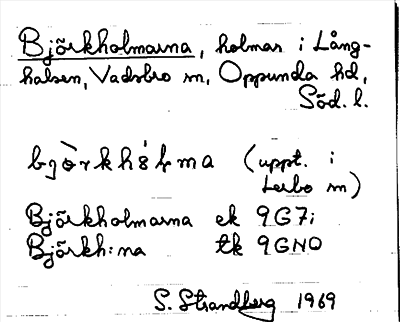 Björkholmarna, holmar i Lång-
halsen, Vadsbro sn, Oppunda hd,
Söd. l.
bjòrkhó̵ɫma (uppt. i
Lerbo sn)
Björkholmarna ek 9G7i
Björkh:na tk 9GNO
S. Strandberg 1969